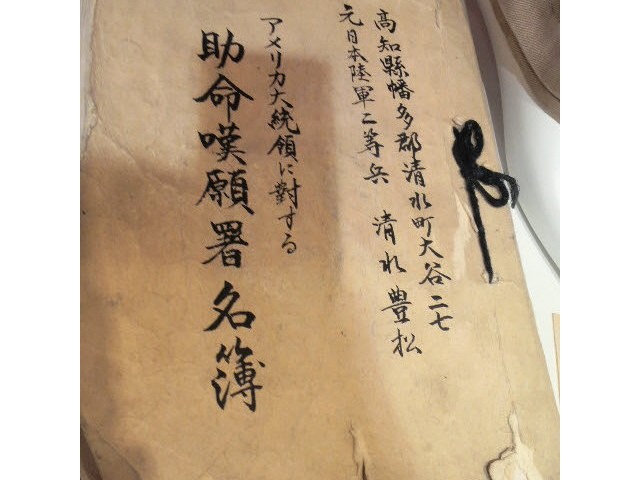 高知縣幡多郡清水町大谷二七
元日本陸軍二等兵　清水豊松
アメリカ大統領に對する
助命嘆願署名簿